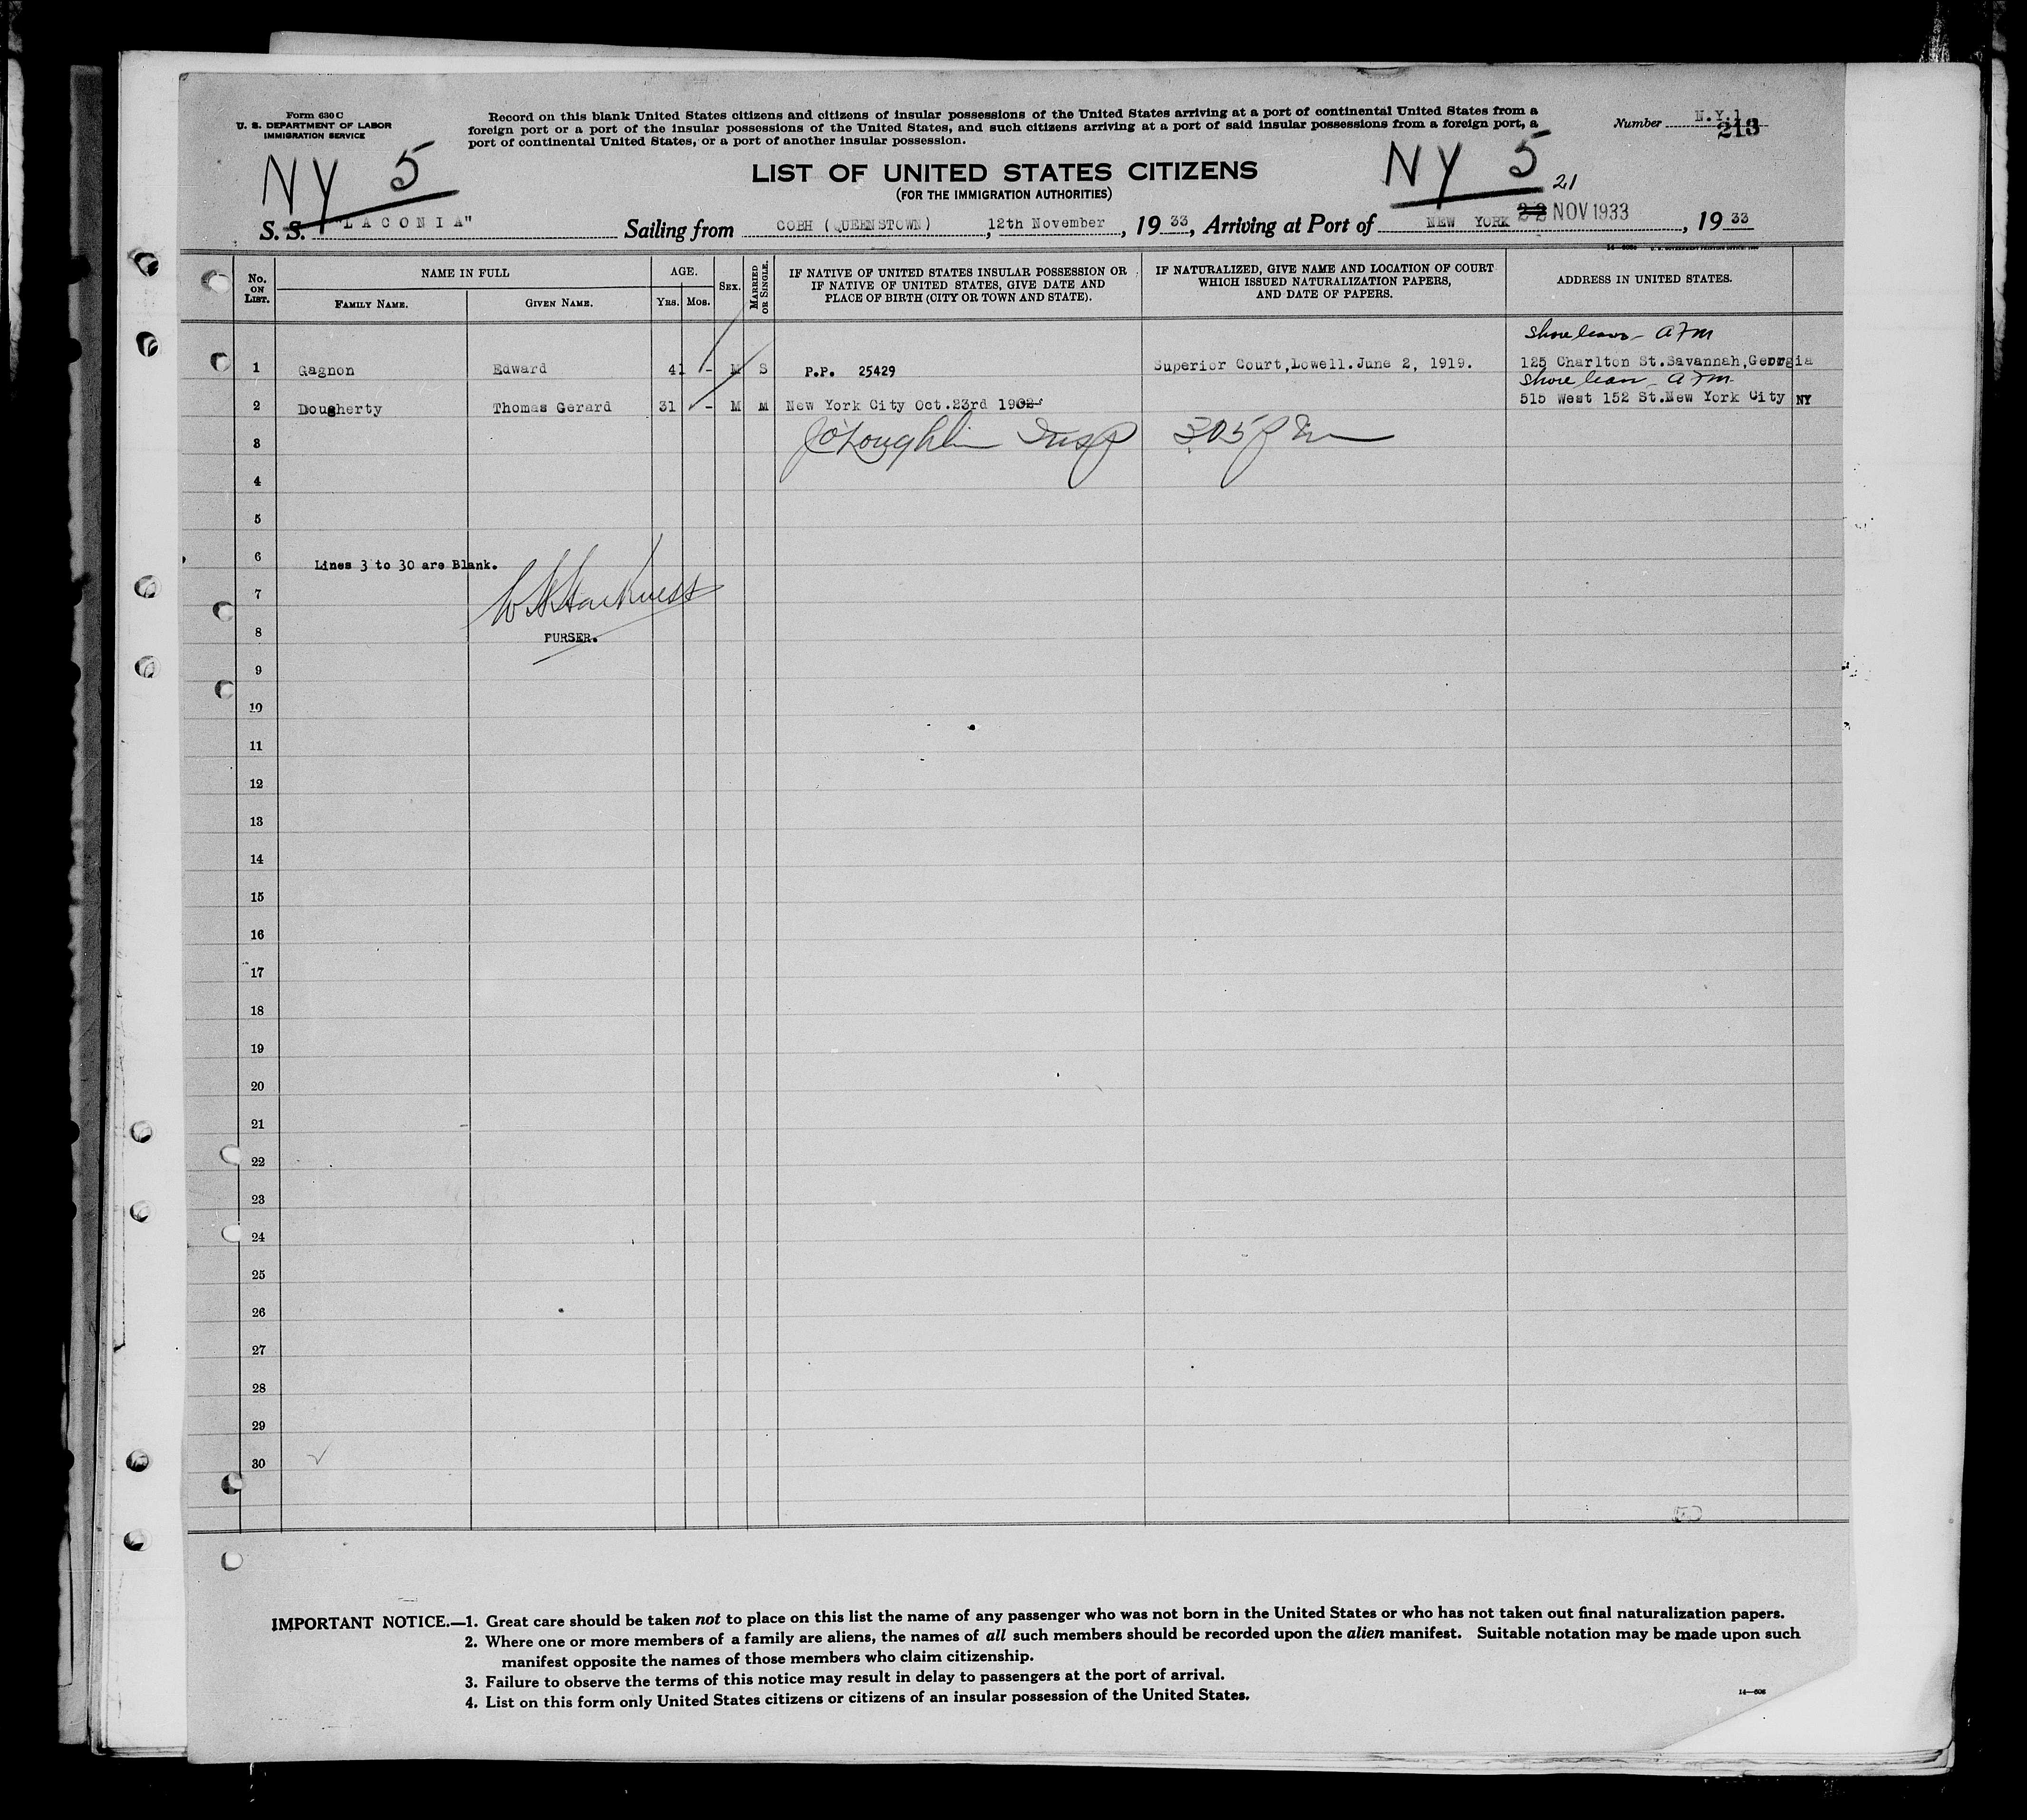 Form 630 C
U. S. DEPARTMENT OF LABOR
IMMIGRATION SERVICE
Record on this blank United States citizens and citizens of insular possessions of the United States arriving at a port of continental United States from a
foreign port or a port of the insular possessions of the United States, and such citizens arriving at a port of said insular possessions from a foreign port, a
port of continental United States, or a port of another insular possession.
Number N.Y.1.
213
NY 5
LIST OF UNITED STATES CITIZENS
(FOR THE IMMIGRATION AUTHORITIES)
NY 5
21
S. S. "LACONIA" Sailing from COBH (QUEENSTOWN), 12th November, 19 33, Arriving at Port of NEW YORK 22 NOV 1933, 19 33
No. ON LIST. NAME IN FULL AGE. SEX. MARRIED OR SINGLE. IF NATIVE OF UNITED STATES INSULAR POSSESSION OR IF NATIVE OF UNITED STATES, GIVE DATE AND PLACE OF BIRTH (CITY OR TOWN AND STATE). IF NATURALIZED, GIVE NAME AND LOCATION OF COURT WHICH ISSUED NATURALIZATION PAPERS, AND DATE OF PAPERS. ADDRESS IN UNITED STATES.
FAMILY NAME. GIVEN NAME. YRS. MOS.
Shore leave - AFM
1 Gagnon Edward 41 - M S P.P. 25429 Superior Court,Lowell.June 2, 1919. 125 Charlton St.Savannah,Georgia
Shore leave - AFM
2 Dougherty Thomas Gerard 31 - M M New York City Oct.23rd 1902 515 West 152 St.New York City NY
3 J O'Loughlin Insp 305 PM
4
5
6 Lines 3 to 30 are Blank.
7 Harkness
8 PURSER.
9
10
11
12
13
14
15
16
17
18
19
20
21
22
23
24
25
26
27
28
29
30
IMPORTANT NOTICE.—1. Great care should be taken not to place on this list the name of any passenger who was not born in the United States or who has not taken out final naturalization papers.
2. Where one or more members of a family are aliens, the names of all such members should be recorded upon the alien manifest. Suitable notation may be made upon such
manifest opposite the names of those members who claim citizenship.
3. Failure to observe the terms of this notice may result in delay to passengers at the port of arrival.
4. List on this form only United States citizens or citizens of an insular possession of the United States.